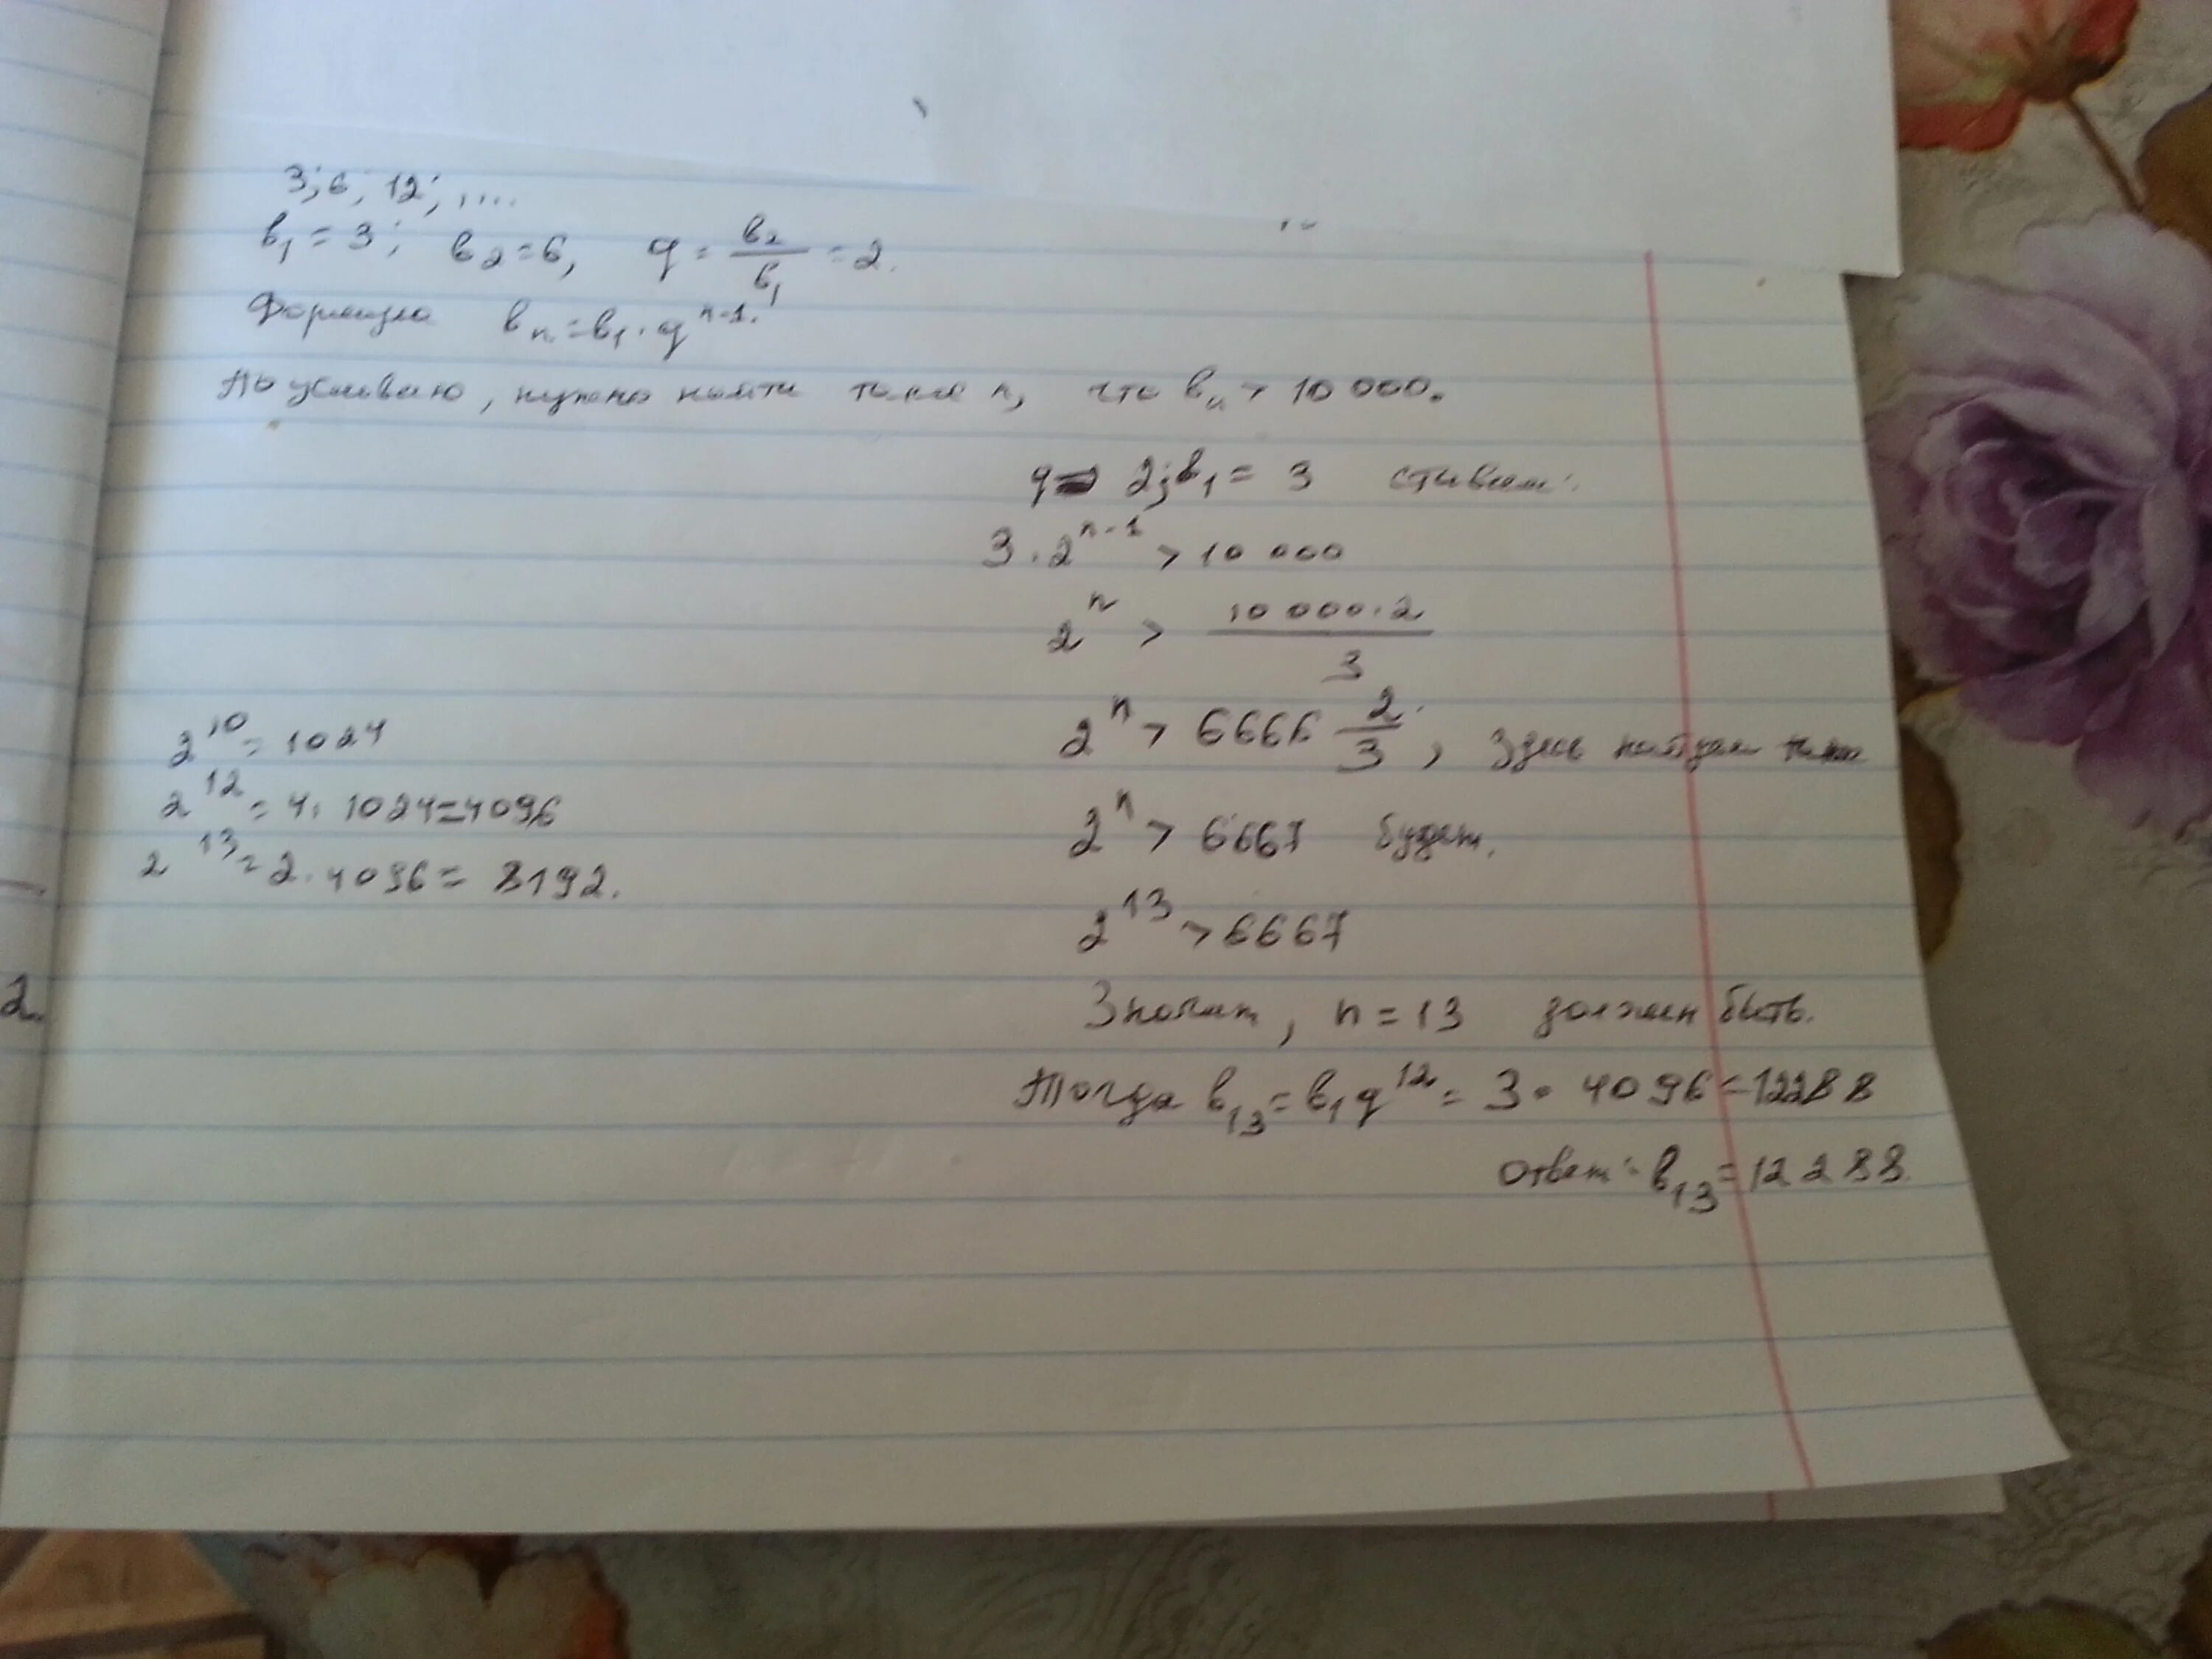 3; 6; 12; ....
b₁ = 3; b₂ = 6, q = b₂/b₁ = 2.
Формула bₙ = b₁ · qⁿ⁻¹.
По условию, нужно найти такое n, что bₙ > 10 000.
q = 2; b₁ = 3 ставим:
3 · 2ⁿ⁻¹ > 10 000
2ⁿ > 10 000 · 2 / 3
2ⁿ > 6666 2/3, здесь найдем
2ⁿ > 6667 будет.
2¹³ > 6667
Значит, n = 13 должен быть.
Тогда b₁₃ = b₁q¹² = 3 · 4096 = 12288
Ответ: b₁₃ = 12288.
2¹⁰ = 1024
2¹² = 4 · 1024 = 4096
2¹³ = 2 · 4096 = 8192.
2.